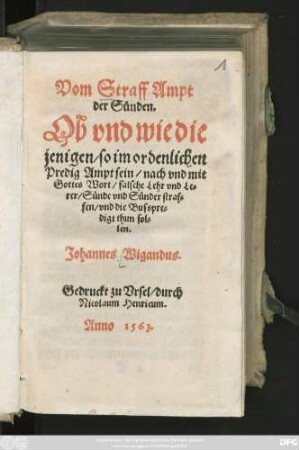 1
Vom Straff Ampt
der Sünden.
Ob vnd wie die
jenigen/so im ordenlichen
Predig Ampt sein/nach vnd mit
Gottes Wort/falsche Lehr vnd Le-
rer/Sünde vnd Sünder straf-
fen/vnd die Busspre-
digt thun sol-
len.
Johannes Wigandus.
Gedruckt zu Vrsel/durch
Nicolaum Henricum.
Anno 1563.